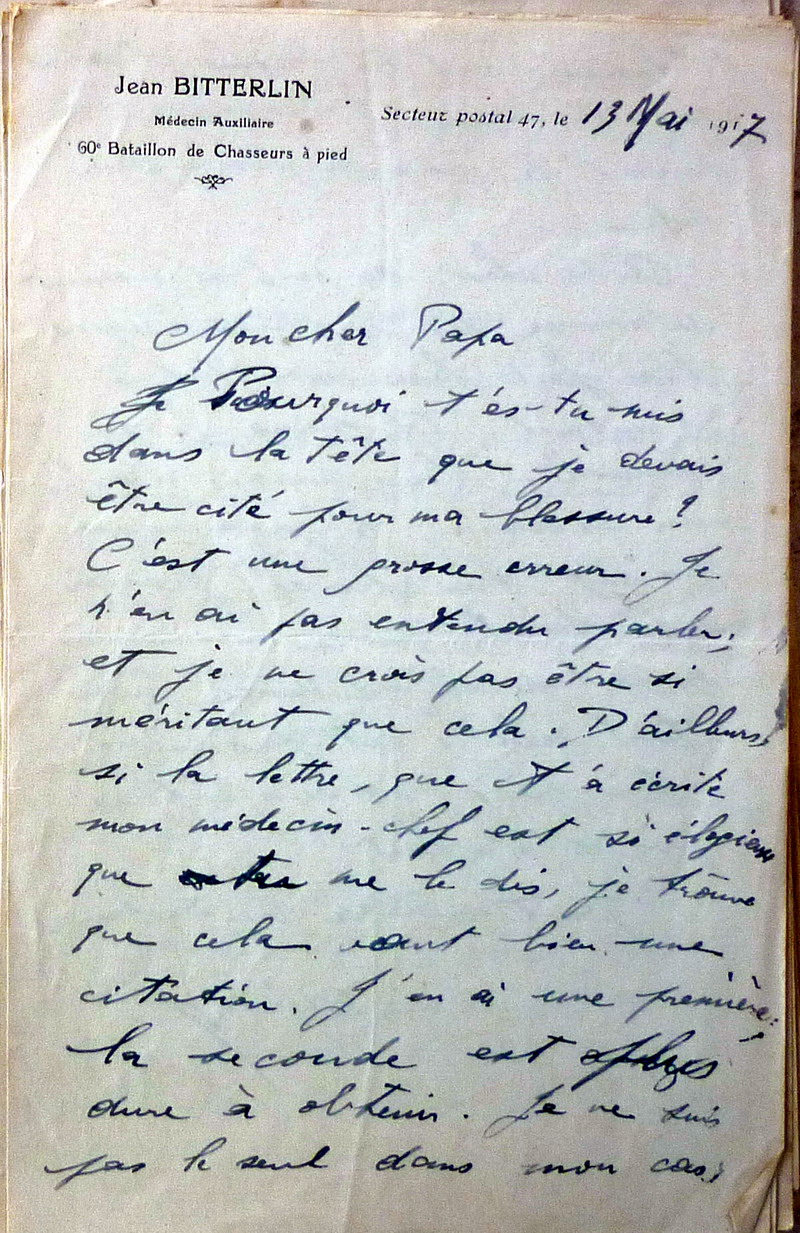 Jean BITTERLIN
Médecin Auxiliaire
60e Bataillon de Chasseurs à pied
Secteur postal 47, le 13 Mai 1917
Mon cher Papa
Je Pourquoi t'es-tu mis
dans la tête que je devais
être cité pour ma blessure ?
C'est une grosse erreur. Je
n'en ai pas entendu parler ;
et je ne crois pas être si
méritant que cela. D'ailleurs,
si la lettre, que t'a écrite
mon médecin-chef est si élogieuse
que tu me le dis, je trouve
que cela vaut bien une
citation. J'en ai une première ;
la seconde est plus
dure à obtenir. Je ne suis
pas le seul dans mon cas ;